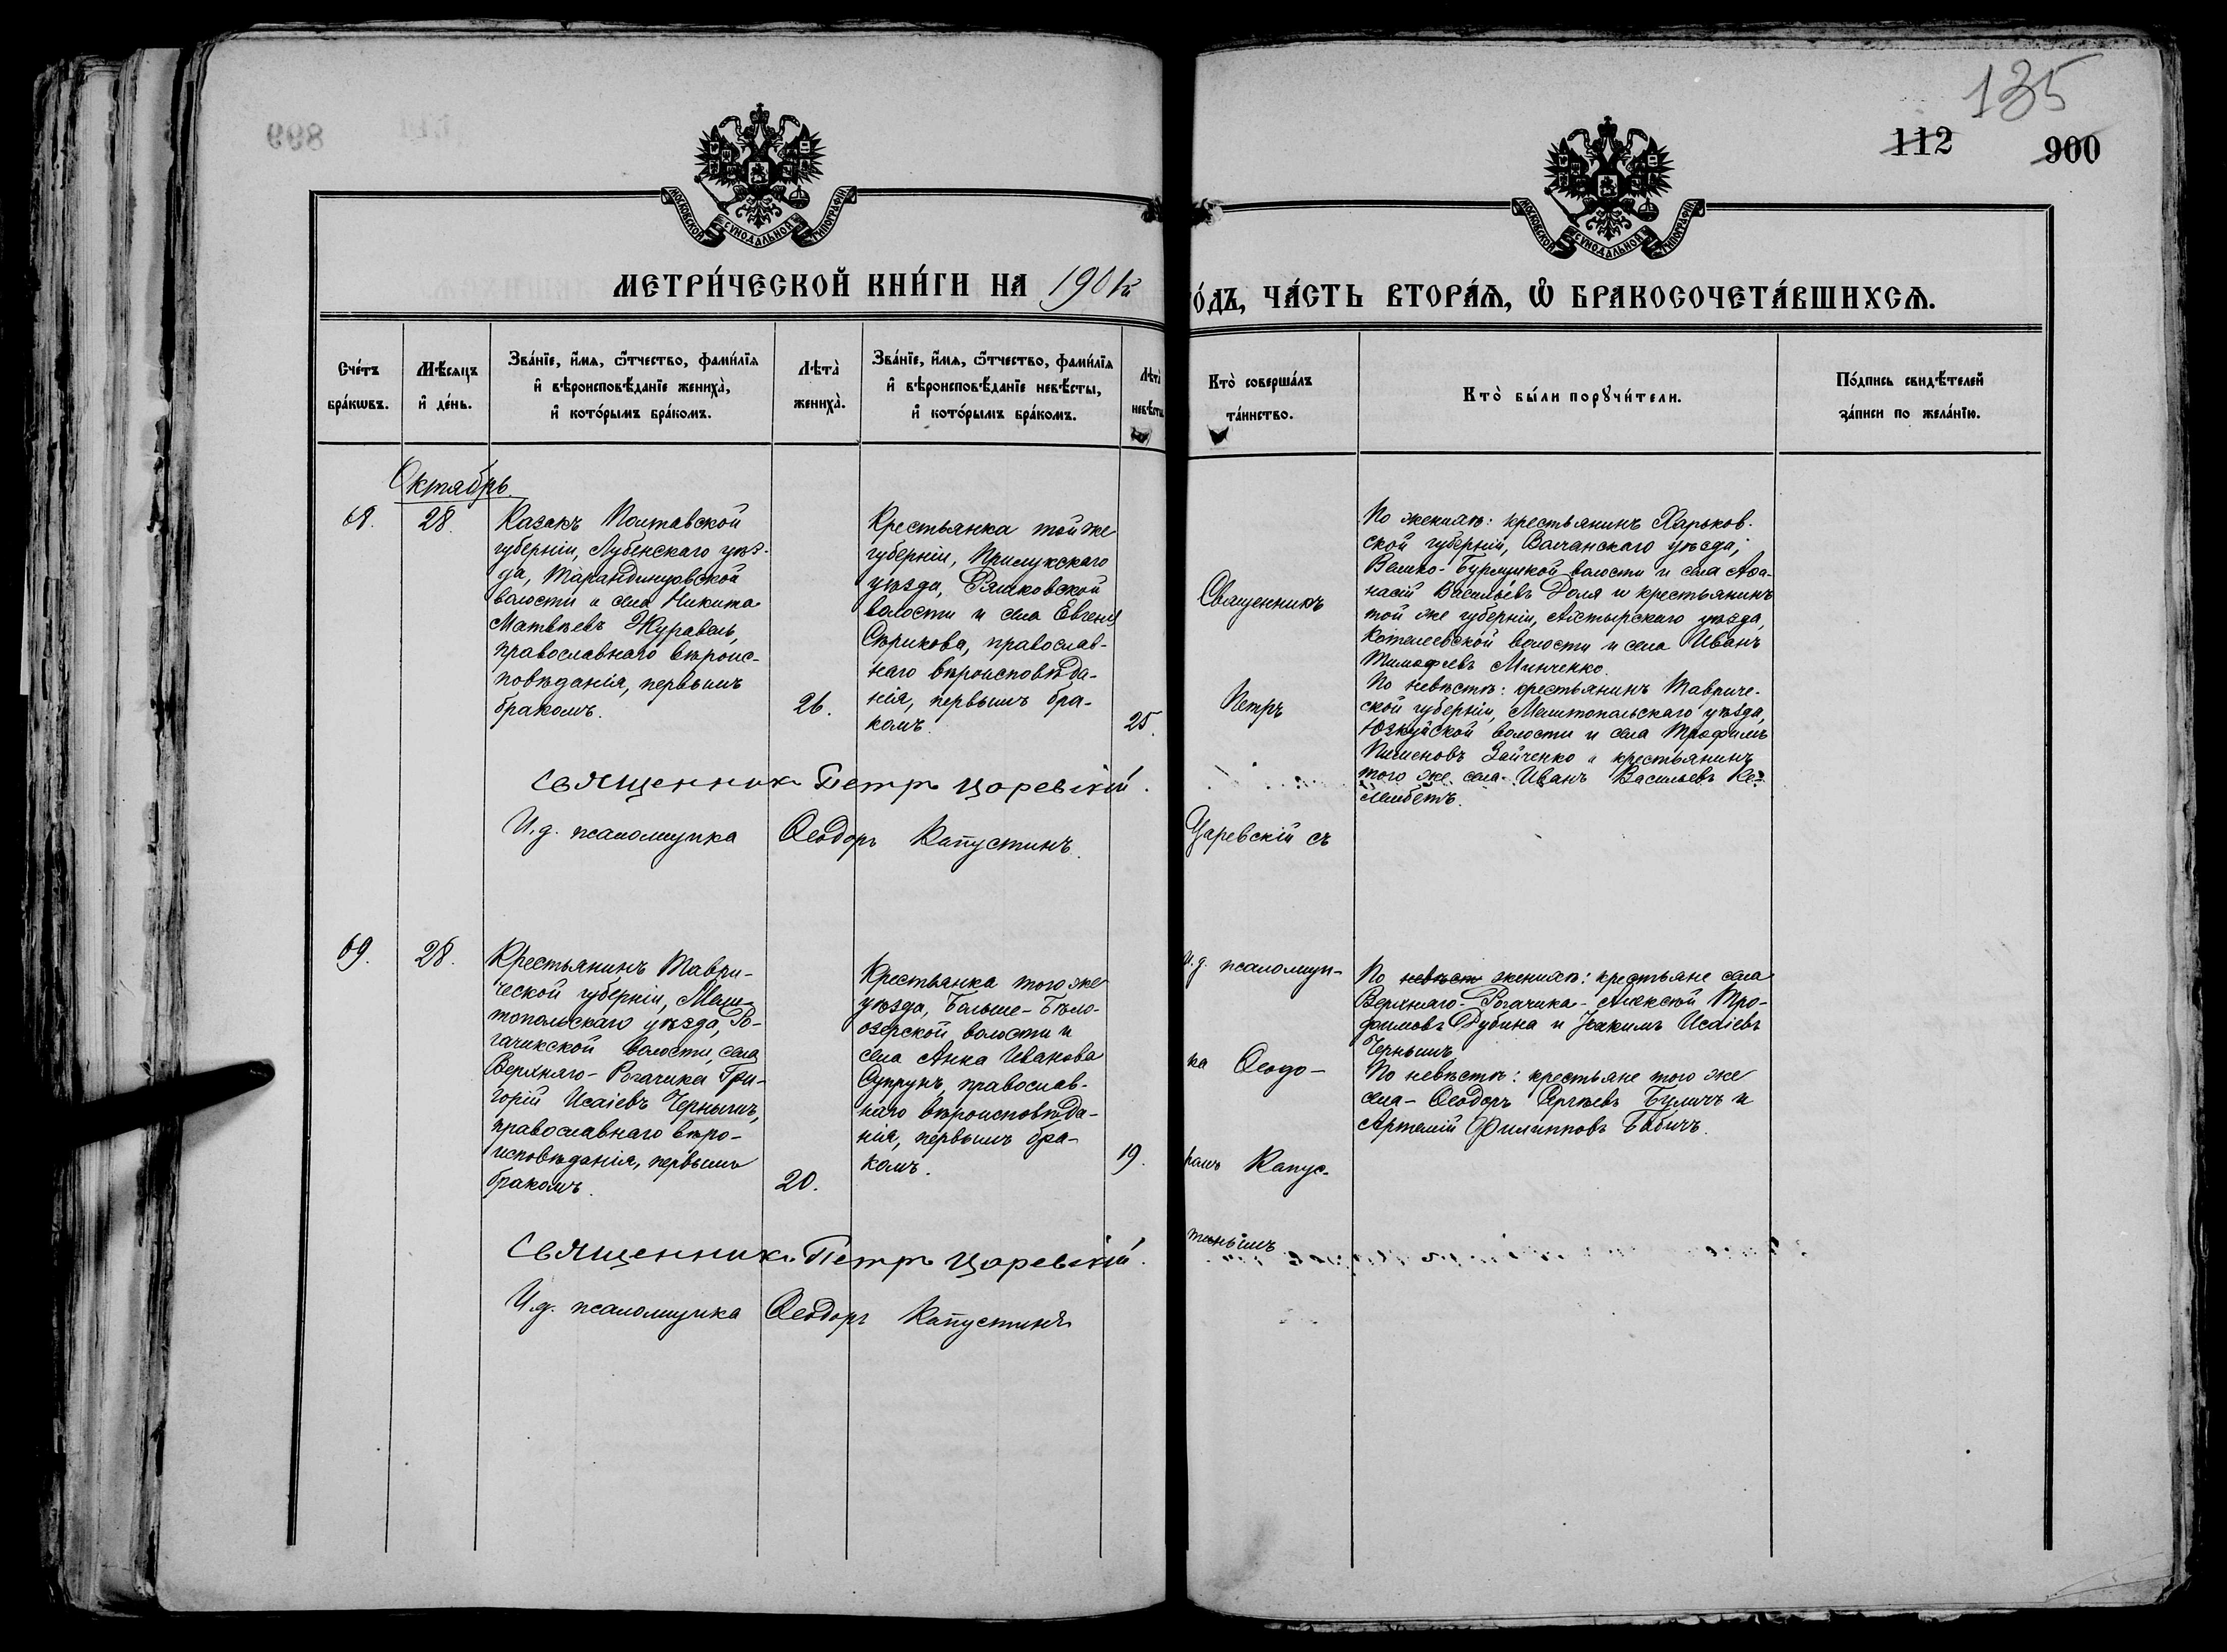 135
112
900
899
МОСКОВСКОЙ СѴНОДАЛЬНОЙ ТИПОГРАФІИ
МОСКОВСКОЙ СѴНОДАЛЬНОЙ ТИПОГРАФІИ
МЕТРИ́ЧЕСКОЙ КНИ́ГИ НА 1901й
О́ДЪ, ЧА́СТЬ ВТОРА́Ѧ, Ѽ БРАКОСОЧЕТА́ВШИХСѦ.
Сче́тъ
бра́кѡвъ.
Мѣ́сяцъ
и҆ де́нь.
Зва́нїе, и҆́мѧ, ѻ҆́тчество, фами́лїѧ
и҆ вѣроисповѣ́данїе жениха̀,
и҆ кото́рымъ бра́комъ.
Лѣта̀
жениха̀.
Зва́нїе, и҆́мѧ, ѻ҆́тчество, фами́лїѧ
и҆ вѣроисповѣ́данїе невѣ́сты,
и҆ кото́рымъ бра́комъ.
Лѣта̀
невѣ́сты
Кто̀ соверша́лъ
та́инство.
Кто̀ бы́ли порꙋчи́тели.
По́дпись свидѣ́телей
за́писи по жела́нїю.
Октябрь.
68.
28.
Казакъ Полтавской
губерніи, Лубенскаго уѣз-
да, Тарандинцовской
волости и села Никита
Матвѣевъ Журавель,
православнаго вѣроис-
повѣданія, первымъ
бракомъ.
26.
Крестьянка той же
губерніи, Прилукскаго
уѣзда, Ряшковской
волости и села Евгенія
Сѣрикова, православ-
наго вѣроисповѣда-
нія, первымъ бра-
комъ.
25.
Священникъ
Петръ
Царевскій съ
По женихѣ: крестьянинъ Харьков-
ской губерніи, Волчанскаго уѣзда,
Велико-Бурлуцкой волости и села Аѳа-
насій Васильевъ Доля и крестьянинъ
той же губерніи, Ахтырскаго уѣзда,
Котелевской волости и села Иванъ
Тимофеевъ Минченко.
По невѣстѣ: крестьянинъ Тавриче-
ской губерніи, Мелитопольскаго уѣзда,
Юзкуйской волости и села Трофимъ
Пименовъ Зайченко и крестьянинъ
того же села Иванъ Васильевъ
Священникъ Петръ Царевскій.
И.д. псаломщика Ѳеодоръ Капустинъ.
69.
28.
Крестьянинъ Таври-
ческой губерніи, Мели-
топольскаго уѣзда, Ро-
гачикской волости, села
Верхняго-Рогачика Гри-
горій Исаіевъ Чернышъ,
православнаго вѣро-
исповѣданія, первымъ
бракомъ.
20.
Крестьянка того же
уѣзда, Больше-Бѣло-
озерской волости и
села Анна Иванова
Супрунъ, православ-
наго вѣроисповѣда-
нія, первымъ бра-
комъ.
19.
и.д. псаломщи-
ка Ѳеодо-
ромъ Капус-
тинымъ
По невѣст женихѣ: крестьяне села
Верхняго-Рогачика - Алексѣй Тро-
фимовъ Дубина и Іоакимъ Исаіевъ
Чернышъ
По невѣстѣ: крестьяне того же
села - Ѳеодоръ Сергѣевъ Буличъ и
Артемій Филипповъ Бабичъ.
Священникъ Петръ Царевскій.
И.д. псаломщика Ѳеодоръ Капустинъ